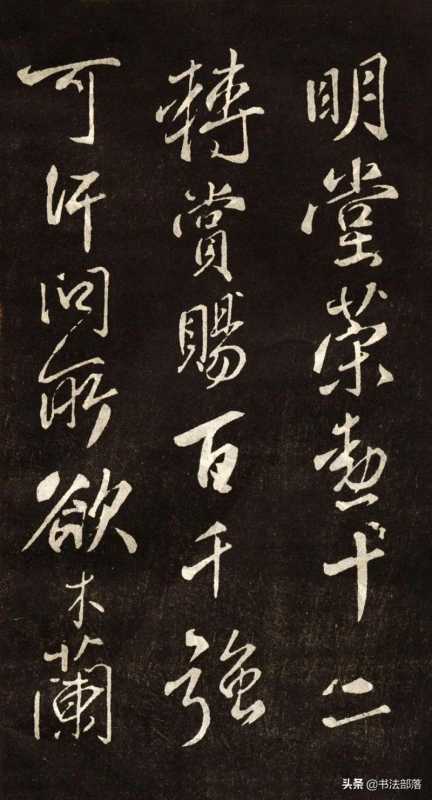 明堂策勳十二
轉賞賜百千強
可汗問所欲木蘭
头条 @书法部落